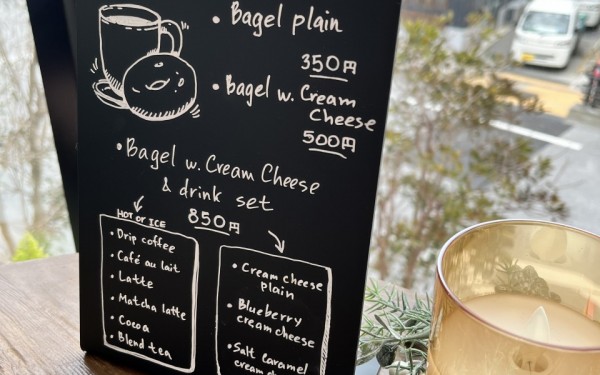 • Bagel plain
350円
• Bagel w. Cream
Cheese
500円
• Bagel w. Cream Cheese
& drink set
850円
HOT or ICE
• Drip coffee
• Café au lait
• Latte
• Matcha latte
• Cocoa
• Blend tea
• Cream cheese
plain
• Blueberry
cream cheese
• Salt caramel
cream